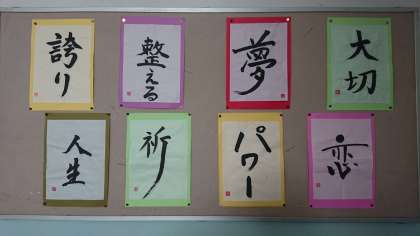 誇り
整える
夢
大切
人生
祈
パワー
恋